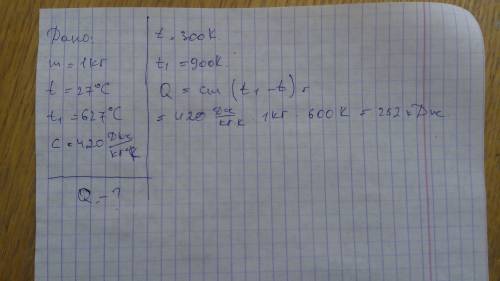 Дано:
m = 1кг
t = 27°C
t₁ = 627°C
c = 420 Дж/кг·К
Q - ?
t = 300К
t₁ = 900К
Q = cm (t₁ - t) =
= 420 Дж/кг·К · 1кг · 600 К = 252 кДж